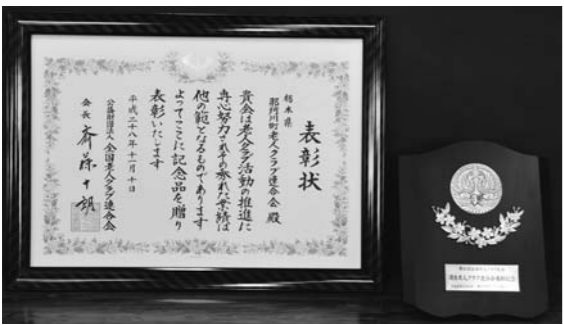 表彰状
栃木県
那珂川町老人クラブ連合会 殿
貴会は老人クラブ活動の推進に
専心努力されその秀れた業績は
他の範となるものであります
よってここに記念品を贈り
表彰いたします
平成二十八年十一月十日
公益財団法人 全国老人クラブ連合会
会長 斎藤十朗